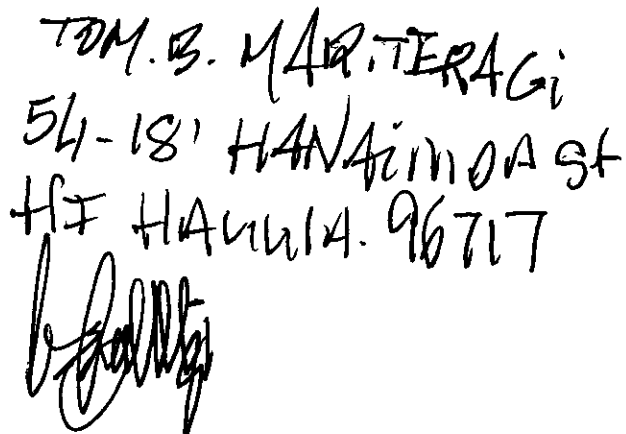 TOM. B. MARITERAGi
54-181 HANAiMOA St
HI HAUULA. 96717